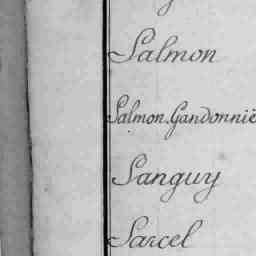 Salmon
Salmon Gandonniè
Sanguy
Sarcel